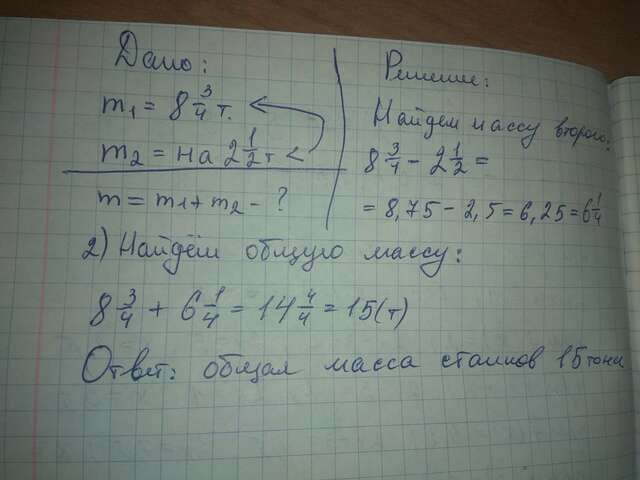 Дано:
m₁ = 8 3/4 т.
m₂ = на 2 1/2 т <
m = m₁ + m₂ - ?
Решение:
Найдем массу второго:
8 3/4 - 2 1/2 =
= 8,75 - 2,5 = 6,25 = 6 1/4
2) Найдём общую массу:
8 3/4 + 6 1/4 = 14 4/4 = 15 (т)
Ответ: общая масса станков 15 тонн